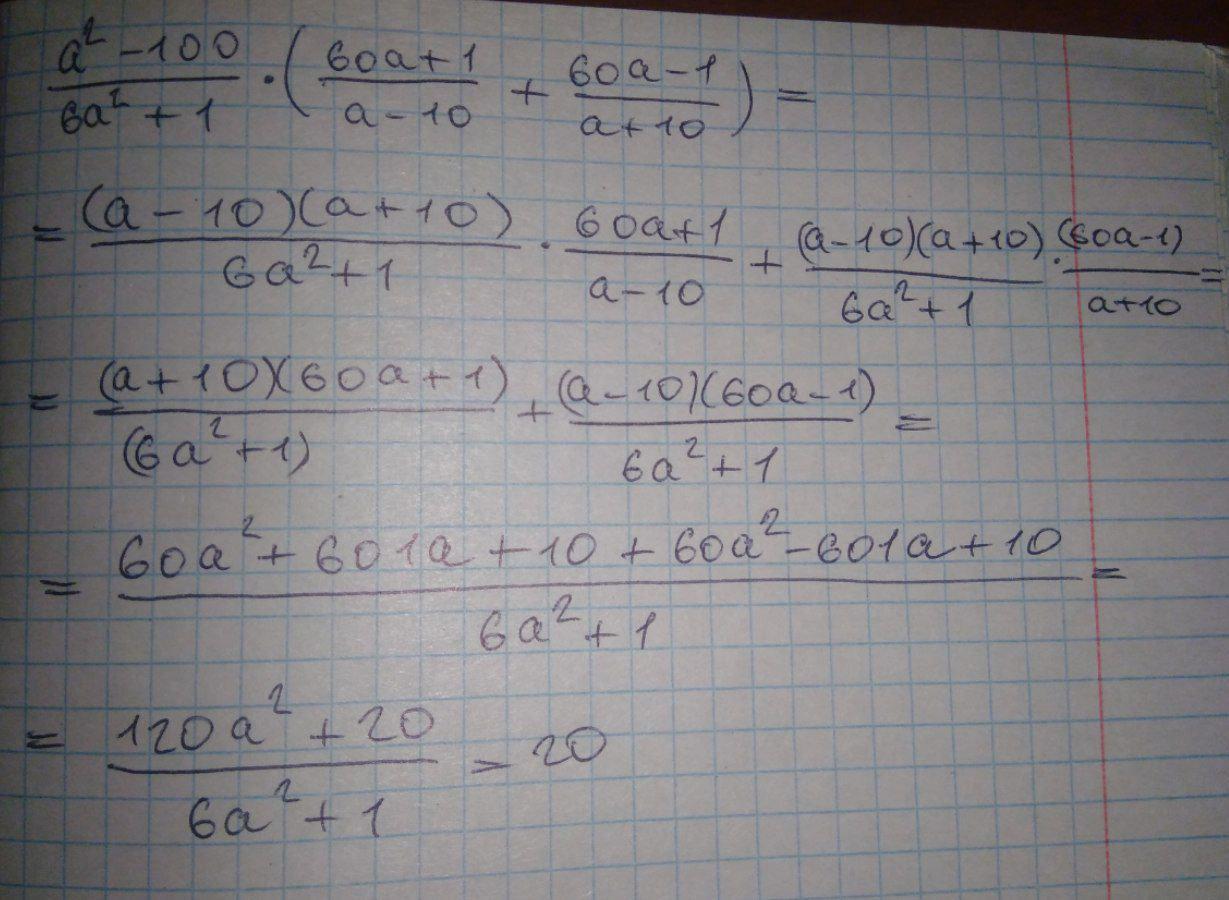 (a² - 100)/(6a² + 1) · ((60a + 1)/(a - 10) + (60a - 1)/(a + 10)) =
= ((a - 10)(a + 10))/(6a² + 1) · (60a + 1)/(a - 10) + ((a - 10)(a + 10))/(6a² + 1) · (60a - 1)/(a + 10) =
= ((a + 10)(60a + 1))/(6a² + 1) + ((a - 10)(60a - 1))/(6a² + 1) =
= (60a² + 601a + 10 + 60a² - 601a + 10)/(6a² + 1) =
= (120a² + 20)/(6a² + 1) = 20